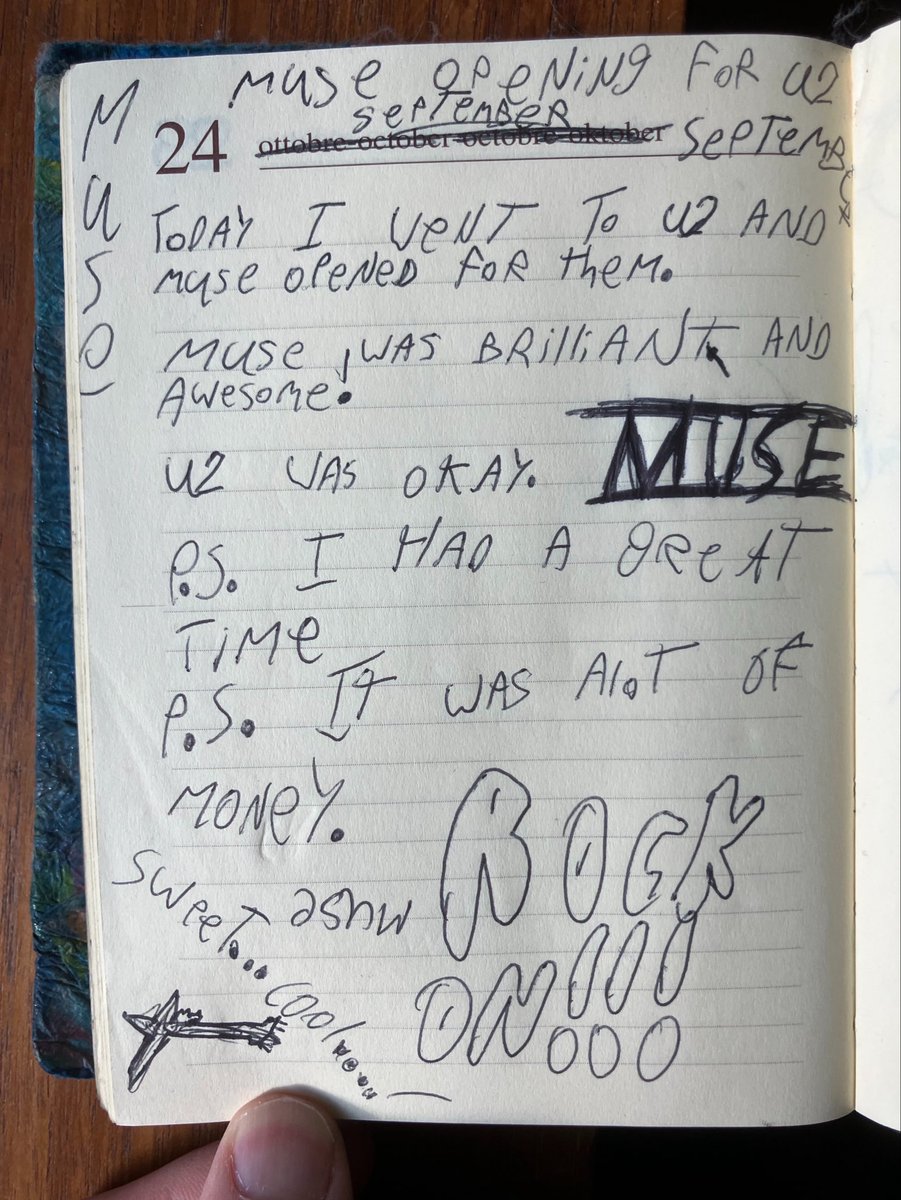 MUSE OPENING FOR U2
SEPTEMBER
24 ottobre-october-octobre-oktober SEPTEMBER
MUSE
TODAY I WENT TO U2 AND
MUSE OPENED FOR THEM.
MUSE WAS BRILLIANT AND
AWESOME.
MUSE
U2 WAS OKAY.
P.S. I HAD A GREAT
TIME
P.S. IT WAS ALOT OF
MONEY.
ROCK
ON!!!
SWEET...
MUSE
COOL